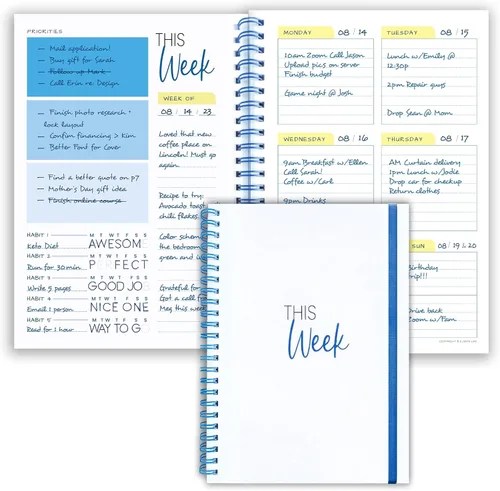 PRIORITIES
— Mail application!
— Buy gift for Sarah
— Follow up Mark
— Call Erin re: Design
— Finish photo research +
lock layout
— Confirm financing > Kim
— Better Font for Cover
— Find a better quote on p7
— Mother's Day gift idea
— Finish online course
HABIT 1 M T W T F S S
Keto Diet AWESOM
HABIT 2 M T W T F S S
Run for 30 min P FECT
HABIT 3 M T W T F S S
Write 5 pages GOOD JO
HABIT 4 M T W T F S S
Email 1 person NICE ONE
HABIT 5 M T W T F S S
Read for 1 hour WAY TO G
THIS
Week
WEEK OF
08 / 14 / 23
Loved that new
coffee place on
Lincoln! Must go
again.
Recipe to try:
Avocado toast
chili flakes.
Color scheme
the bedroom
green and
Grateful for
Got a call f
May this week
MONDAY 08 / 14
10am Zoom Call Jason
Upload pics on server
Finish budget
Game night @ Josh
TUESDAY 08 / 15
Lunch w/Emily @
12:30p
2pm Repair guys
Drop Sean @ Mom
WEDNESDAY 08 / 16
9am Breakfast w/Ellen
Call Sarah!
Coffee w/Carl
9pm Drinks
THURSDAY 08 / 17
AM Curtain delivery
1pm Lunch w/Jodie
Drop car for checkup
Return clothes
SUN 08 / 19 & 20
Birthday
trip!!!
Drive back
Zoom w/Fam
THIS
Week